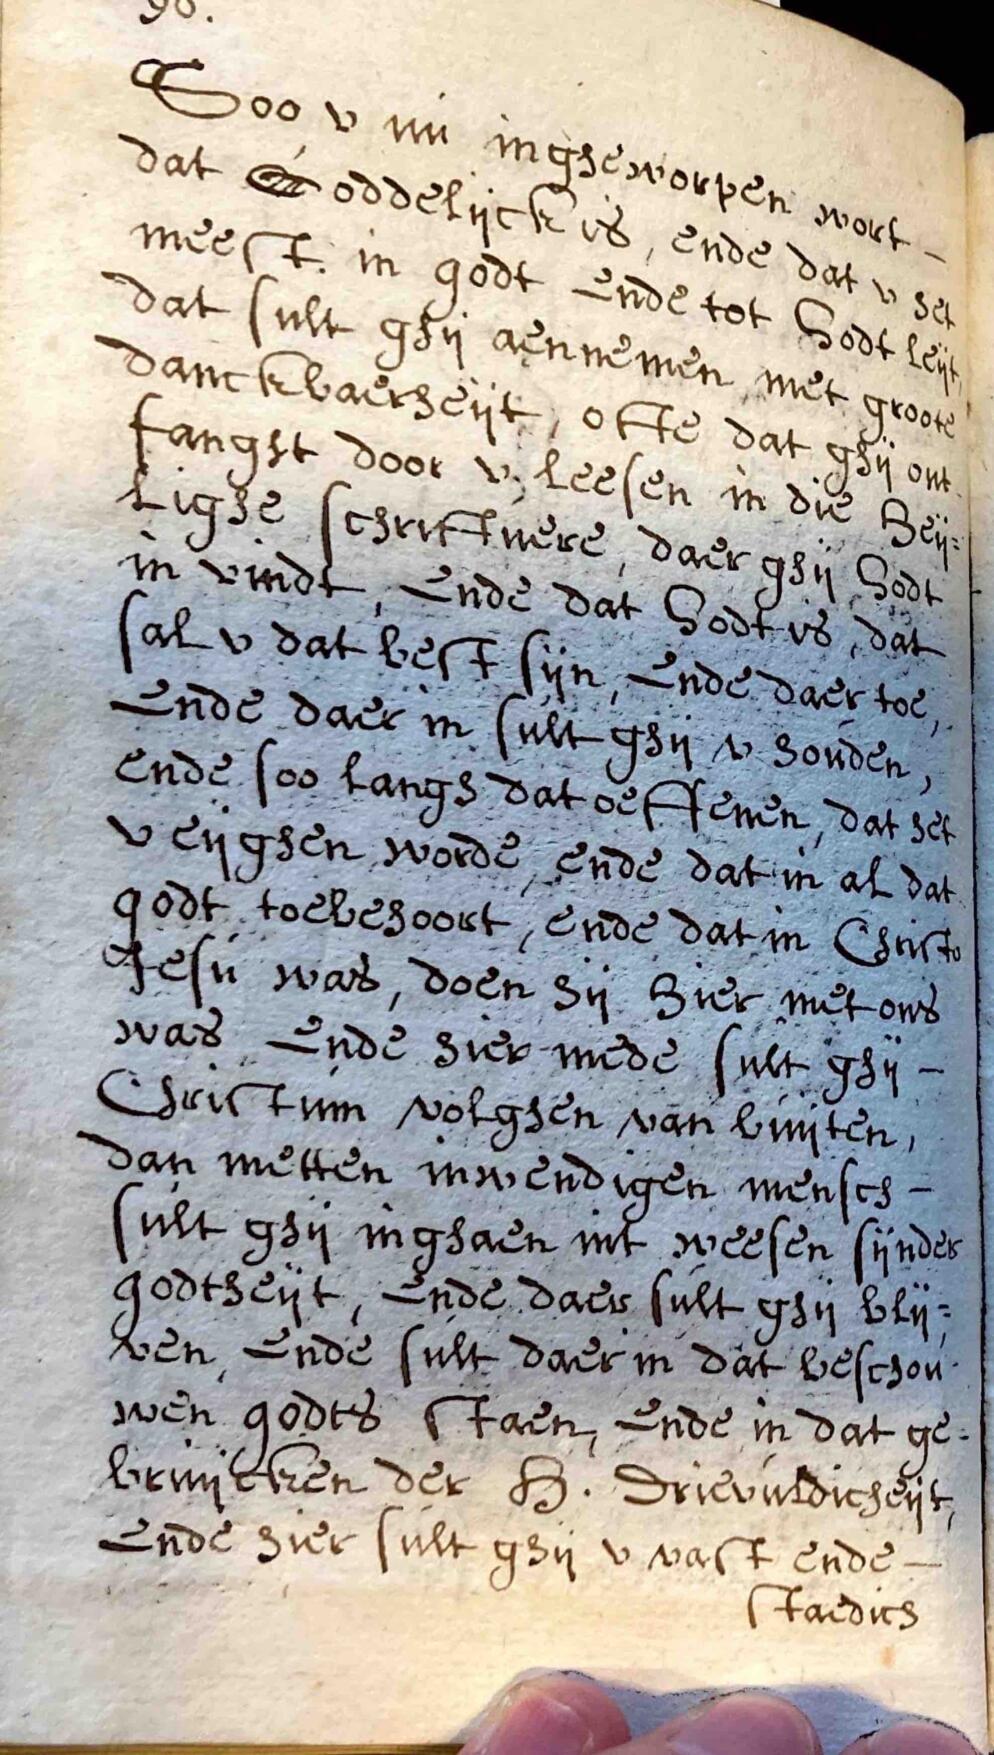 Soo v nu ingheworpen wort –
dat Goddelijck is, ende dat v het
meest in godt Ende tot Godt leijt,
dat sult ghij aennemen met groote
danckbaerheijt, ofte dat ghij ont-
fanght door v, leesen in die Heij=
lighe schriftuere, daer ghij Godt
in vindt, Ende dat Godt is, dat
sal v dat best sijn, Ende daer toe,
Ende daer in sult ghij v houden,
ende soo langh dat oeffenen, dat het
v eijghen worde, ende dat in al dat
godt toebehoort, ende dat in Christo
Jesu was, doen hij hier met ons
was Ende hier mede sult ghij –
Christum volghen van buijten,
dan metten inwendigen mensch –
sult ghij inghaen int weesen sijnder
godtheijt, Ende daer sult ghij blij=
ven, Ende sult daer in dat beschou-
wen godts staen, Ende in dat ge-
bruijcken der H. Drievuldicheijt,
Ende hier sult ghij v vast ende –
staedich